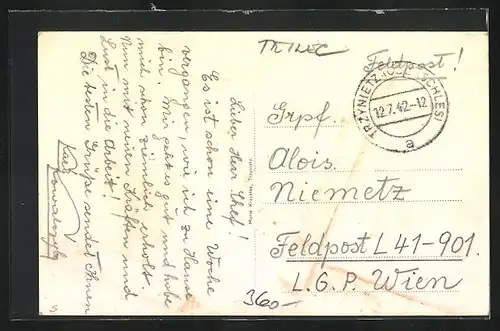 Lieber Herr Chef!
Es ist schon eine Woche
vergangen, wie ich zu Hause
bin. Mir geht es gut und habe
mich schon ziemlich erholt.
Nun mit neuen Kräften und
Lust in die Arbeit!
Die besten Grüße sendet Ihnen
Karl
Kowalczyk
TRINEC
Feldpost!
TRZYNIETZ (OBERSCHLES)
12.7.42-12
a
Grpf.
Alois
Niemetz
Feldpost L 41-901.
L.G.P. Wien
360-